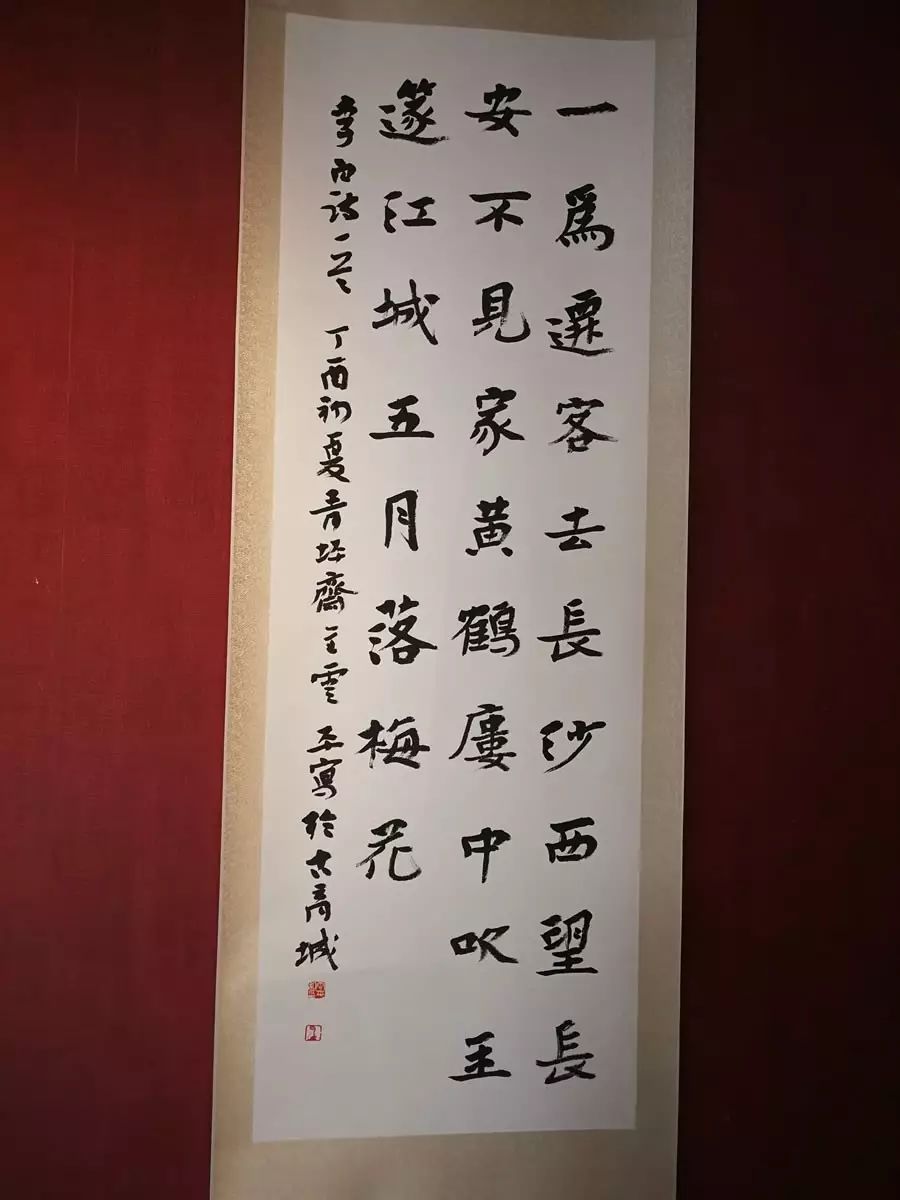 一爲遷客去長沙西望長
安不見家黄鶴廔中吹玉
篴江城五月落梅花
李白詩一首 丁酉初夏青齋主雲平寫於古商城